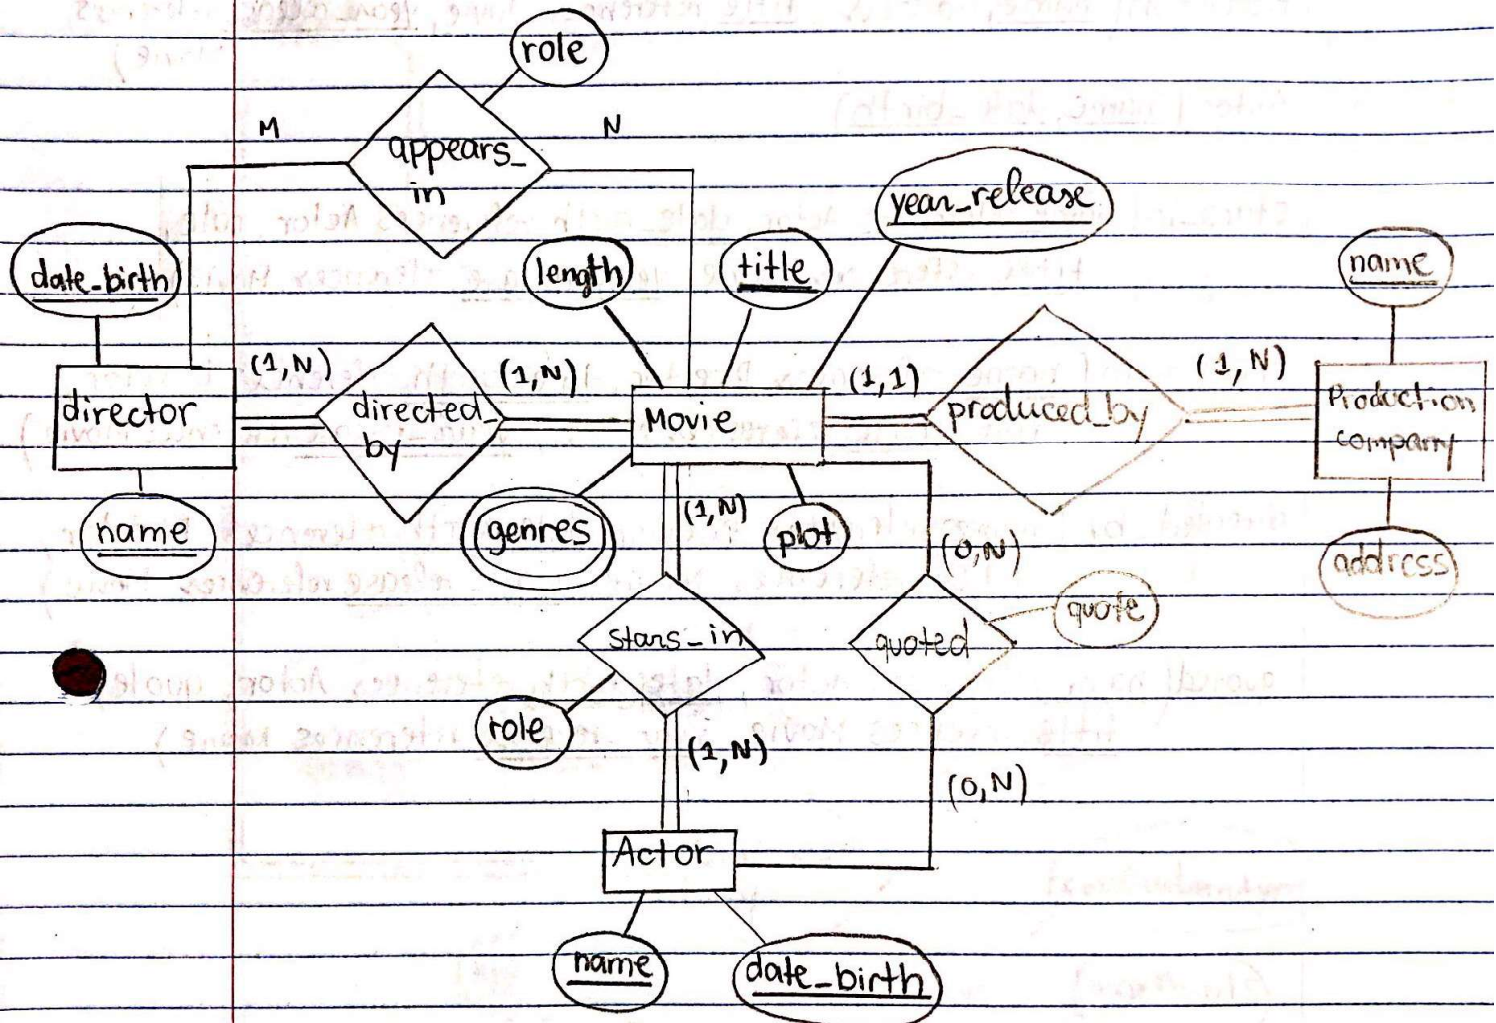 role
M
N
appears_
in
year_release
date_birth
length
title
name
(1,N)
(1,N)
(1,1)
(1,N)
director
directed_
by
Movie
produced_by
Production
company
name
genres
(1,N)
plot
(0,N)
address
stars_in
quoted
quote
role
(1,N)
(0,N)
Actor
name
date_birth